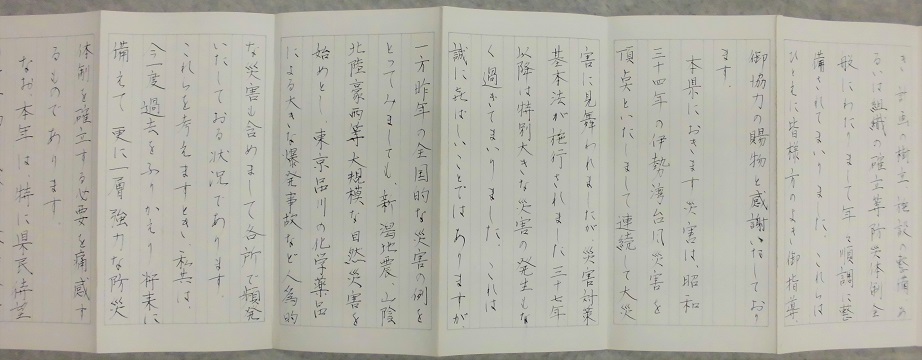 き 計画の樹立 施設の整備 あ
るいは組織の確立等防災体制全
般にわたりまして年々順調に整
備されてまいりました。これらは
ひとえに皆様方のよき御指導
御協力の賜物と感謝いたしており
ます。
本県におきます災害は昭和
三十四年の伊勢湾台風災害を
頂点といたしまして連続して大災
害に見舞われましたが災害対策
基本法が施行されました三十七年
以降は特別大きな災害の発生もな
く過ぎてまいりました。これは
誠に喜ばしいことではありますが、
一方昨年の全国的な災害の例を
とってみましても、新潟地震、山陰
北陸豪雨等大規模な自然災害を
始めとし東京品川の化学薬品
による大きな爆発事故など人為的
な災害も含めまして各所で頻発
いたしておる状況であります。
これらを考えますとき、私共は
今一度過去をふりかえり将来に
備えて更に一層強力な防災
体制を確立する必要を痛感す
るものであります
なお本年は特に県民待望